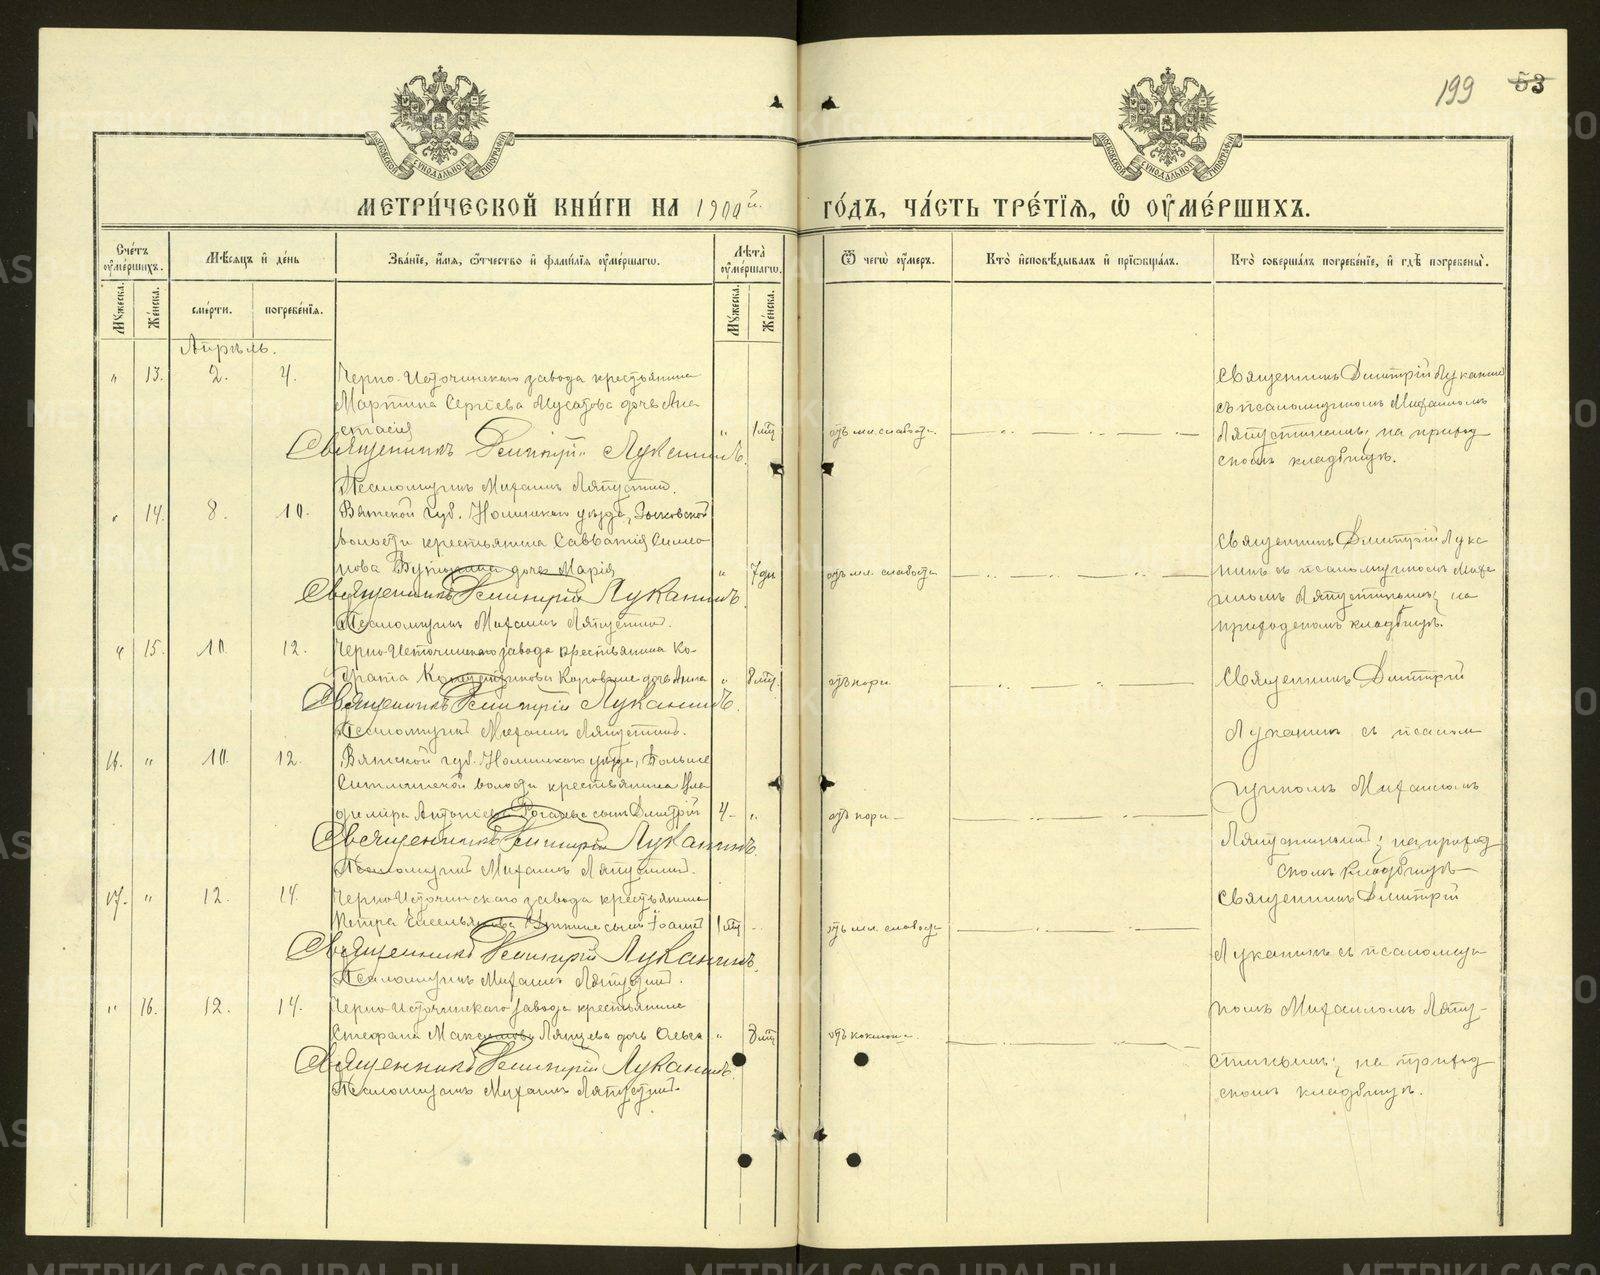 199 53
МОСКОВСКОЙ СѴНОДАЛЬНОЙ ТИПОГРАФІИ
МОСКОВСКОЙ СѴНОДАЛЬНОЙ ТИПОГРАФІИ
МЕТРИ́ЧЕСКОЙ КНИ́ГИ НА 1900й.
ГО́ДЪ, ЧА́СТЬ ТРЕ́ТІЯ, Ѡ ОУМЕ́РШИХЪ.
Сче́тъ оумершихъ.
Мужеска.
Же́нска.
Мѣсяцъ и день
смерти.
погребе́нія.
Зва́ніе, и́мя, о́тчество и фами́лія оумершагѡ.
Лѣта оумершагѡ.
Мужеска.
Же́нска.
Ѿ чегѡ оумеръ.
Кто исповѣдывалъ и пріѡбщалъ.
Кто соверша́лъ погребе́ніе, и гдѣ погребены̀.
Апрѣль.
" 13. 2. 4. Черно-Источинскаго завода крестьянина
Мартина Сергіева Мусатова дочь Ана
стасія " 1 мц отъ мл. слабости.
Священникъ Димитрій Луканинъ.
Псаломщикъ Михаилъ Ляпустинъ.
Священникъ Димитрій Луканинъ
съ псаломщикомъ Михаиломъ
Ляпустинымъ; на приход
скомъ кладбищѣ.
" 14. 8. 10. Вятской губ. Нолинскаго уѣзда,
волости крестьянина Савватія Симео
нова дочь Марія " 7 дн отъ мл. слабости
Священникъ Димитрій Луканинъ.
Псаломщикъ Михаилъ Ляпустинъ.
Священникъ Димитрій Лука
нинъ съ псаломщикомъ Миха
иломъ Ляпустинымъ; на
приходскомъ кладбищѣ.
" 15. 10. 12. Черно-Источинскаго завода крестьянина Ко-
дочь Анна " 8 мц. отъ кори.
Священникъ Димитрій Луканинъ.
Псаломщикъ Михаилъ Ляпустинъ.
Священникъ Димитрій
Луканинъ съ псалом
щикомъ Михаиломъ
Ляпустинымъ; на приход
скомъ кладбищѣ
16. " 10. 12. Вятской губ. Нолинскаго уѣзда, Больше
Ситминской волости крестьянина Вла
диміра Антоніева сынъ Димитрій 4- " отъ кори -
Священникъ Димитрій Луканинъ.
Псаломщикъ Михаилъ Ляпустинъ.
17. " 12. 14. Черно-Источинскаго завода крестьянина
Петра сынъ Іоаннъ 1 мц - отъ мл. слабости
Священникъ Димитрій Луканинъ.
Псаломщикъ Михаилъ Ляпустинъ.
Священникъ Димитрій
Луканинъ съ псаломщи
комъ Михаиломъ Ляпу-
стинымъ; на приход
скомъ кладбищѣ.
" 16. 12. 14. Черно-Источинскаго завода крестьянина
Стефана Максимова дочь Ольга " 8 мц отъ коклюша.
Священникъ Димитрій Луканинъ.
Псаломщикъ Михаилъ Ляпустинъ.